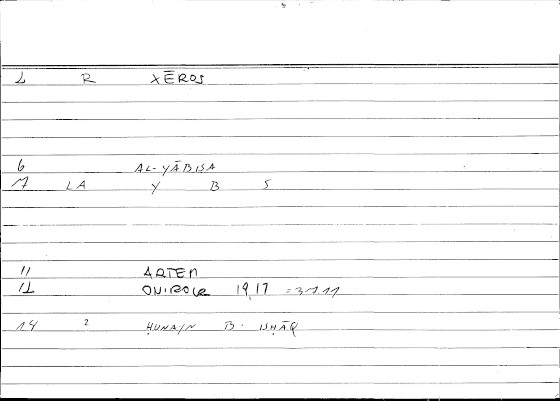 2 R XĒROS
6 AL-YĀBISA
7 LA Y B S
11 ARTEM
12 ONIROCR 19,17 = 31.11
14 2 ḤUNAYN B. ISḤĀQ